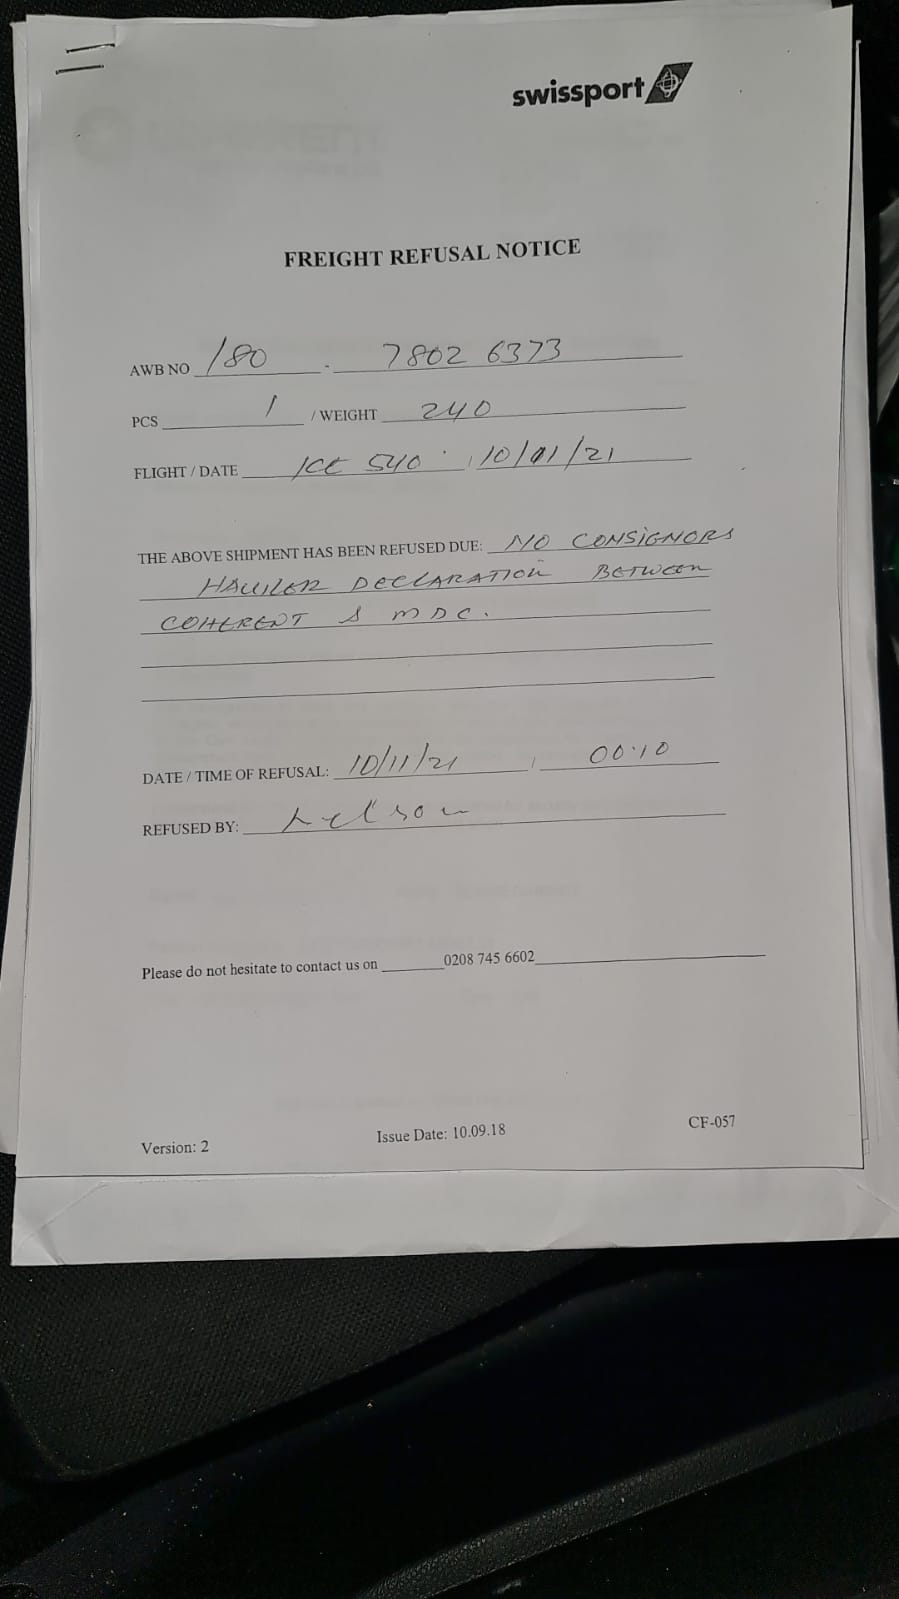 swissport
FREIGHT REFUSAL NOTICE
AWB NO 180 - 7802 6373
PCS 1 / WEIGHT 240
FLIGHT / DATE ICE 540 10/01/21
THE ABOVE SHIPMENT HAS BEEN REFUSED DUE: NO CONSIGNORS
HAULER DECLARATION BETWEEN
COHERENT & MDC.
DATE / TIME OF REFUSAL: 10/11/21 / 00:10
REFUSED BY:
Please do not hesitate to contact us on 0208 745 6602
Version: 2 Issue Date: 10.09.18 CF-057